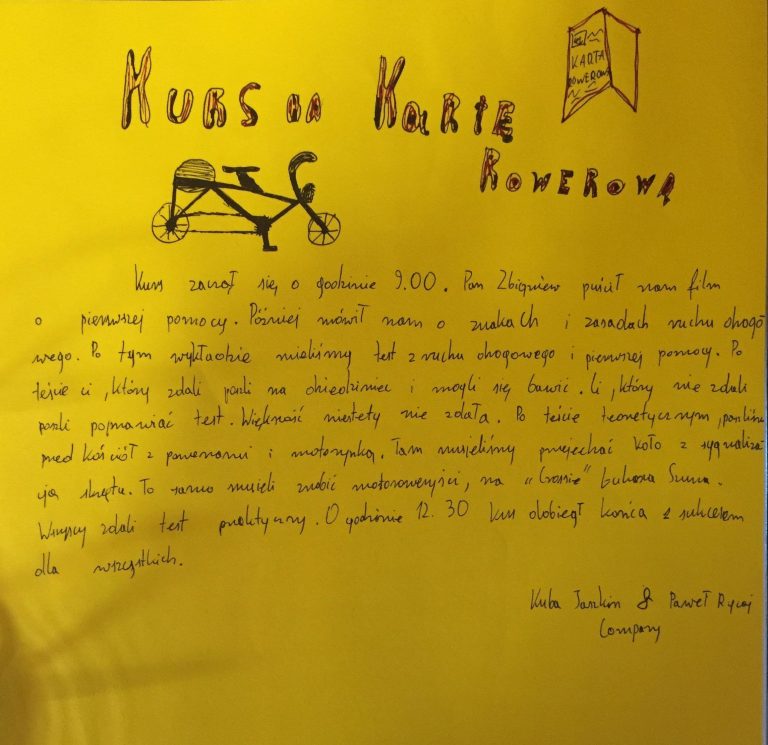 KURS na KARTĘ
ROWEROWĄ
KARTA
ROWEROWA
Kurs zaczął się o godzinie 9.00. Pan Zbigniew puścił nam film
o pierwszej pomocy. Później mówił nam o znakach i zasadach ruchu drogo
wego. Po tym wykładzie mieliśmy test z ruchu drogowego i pierwszej pomocy. Po
teście ci, który zdali poszli na dziedziniec i mogli się bawić. Ci, który nie zdali
poszli poprawiać test. Większość niestety nie zdała. Po teście teoretycznym, poszliśmy
przed kościół z rowerami i motorynką. Tam musieliśmy przejechać koło z sygnaliza
cją skrętu. To samo musieli zrobić motorowerzyści, na "Crossie" Łukasza Szuma.
Wszyscy zdali test praktyczny. O godzinie 12.30 kurs dobiegł końca z sukcesem
dla wszystkich.
Kuba & Paweł
Company